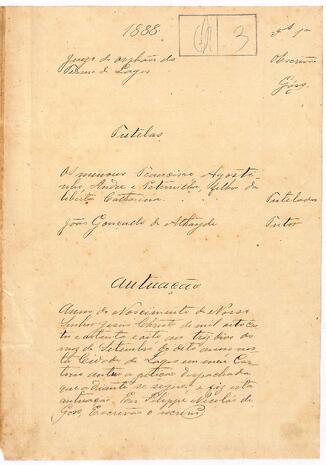 1888.
Cx 3
Juizo de orphãos do
Termo de Lages
Escrivão
Góss
Tutelas
Os menores Francisco, Agosti-
nho, André e Petronilha, filhos da
liberta Catharina.
Tutelados
João Goncalto de Athayde
Tutor
Autuação
Anno do Nascimento de Nosso
Senhor Jesus Christo de mil oito cen-
tos e oitenta e oito, aos tres dias do
mez de Setembro do dito anno nes-
ta Cidade de Lages em meu Car-
torio autuo a petição despachada
que adiante se segue; e fiz esta
autuação. Eu Filippe Nicoláo de
Góss, Escrivão o escrevi